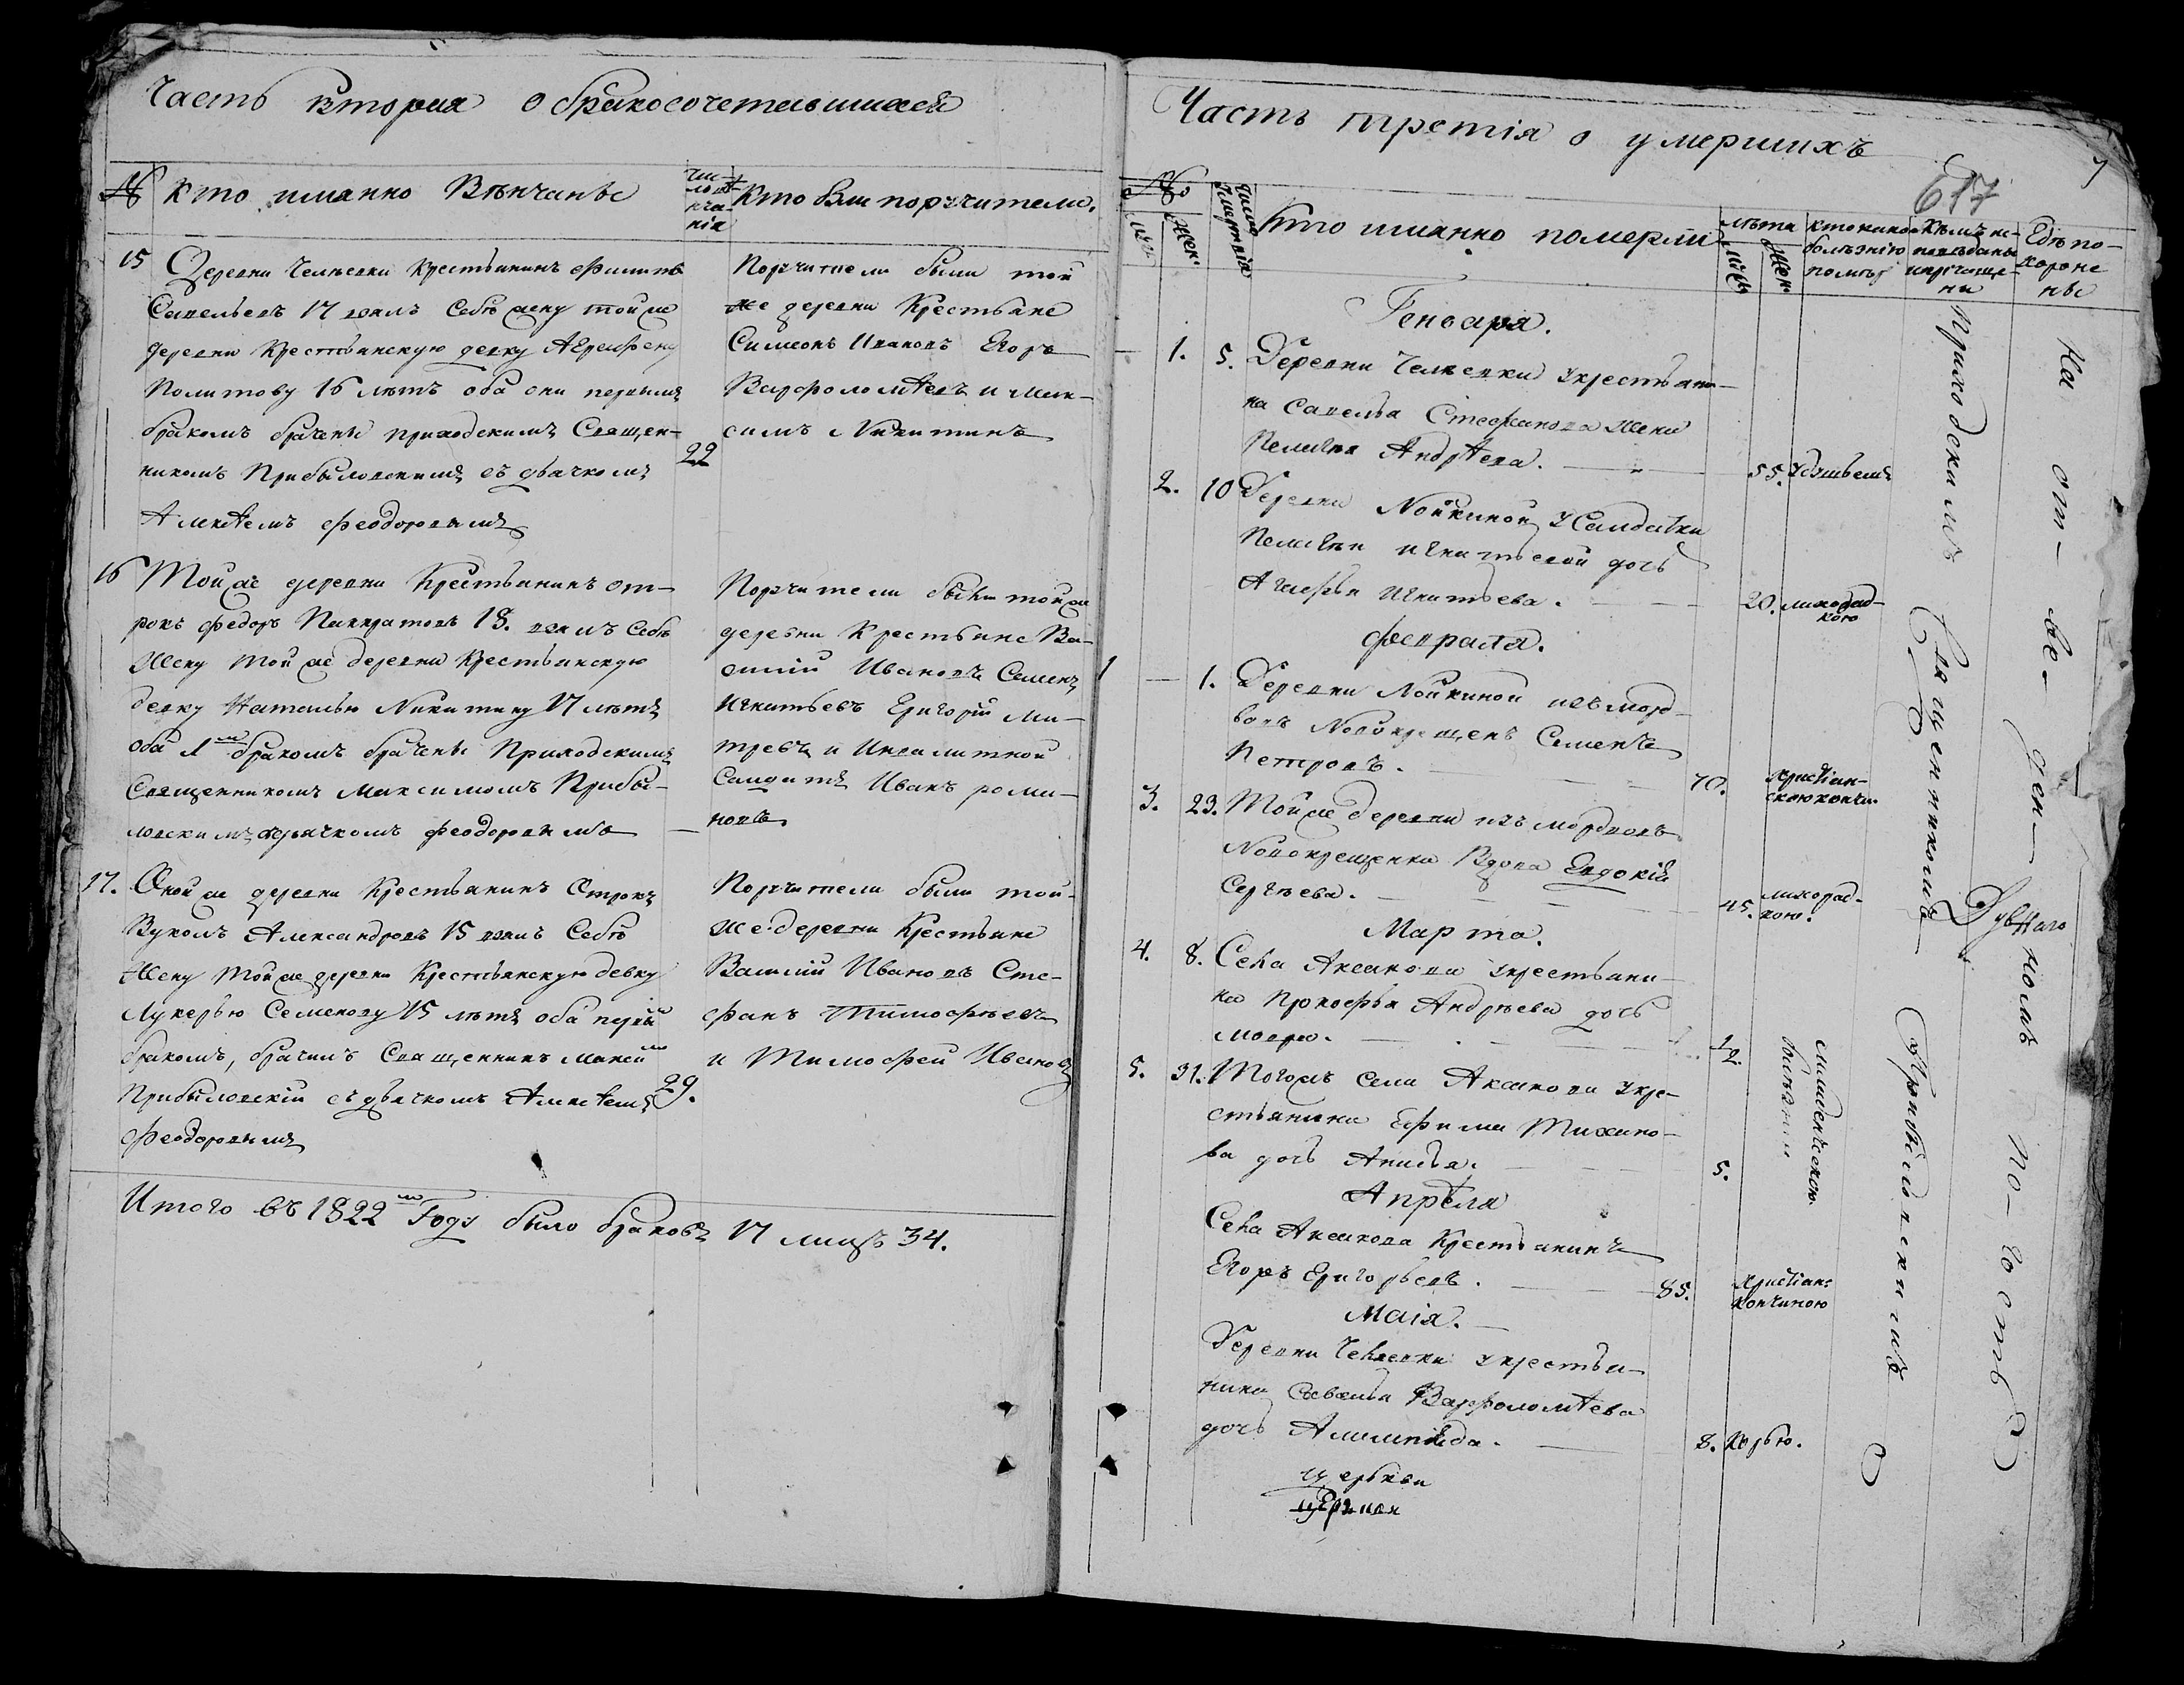 Часть вторая о бракосочетавшихся
№
Кто имянно Венчаны
чи-
сло
вѣн-
ча-
нія
Кто были поручители.
15
Деревни Челневки Крестьянинъ Филипъ
Савельевъ 17 взялъ Себѣ жену той же
деревни Крестьянскую девку Агрефену
Политову 16 лѣтъ оба они первымъ
бракомъ брачены приходскимъ Священ-
никомъ Прибыловскимъ съ дьячкомъ
Алексѣемъ Феодоровымъ
22
Поручители были той
же деревни Крестьяне
Симеонъ Ивановъ Егоръ
Варфоломѣевъ и Мак-
симъ Никитинъ
16
Той же деревни Крестьянинъ от-
рокъ Федоръ Панкратовъ 18. взялъ Себѣ
жену той же деревни Крестьянскую
девку Наталью Никитину 17 лѣтъ
оба 1мъ бракомъ брачены Приходскимъ
Священникомъ Максимомъ Прибы-
ловскимъ дьячкомъ Феодоровымъ
Поручители были той же
деревни Крестьяне Ва-
силій Ивановъ Семенъ
Игнатьевъ Григорій Ми-
тревъ и Инвалитной
Салдатъ Иванъ рома-
новъ
17.
Оной же деревни Крестьянинъ Отрокъ
Вуколъ Александровъ 15 взялъ Себѣ
Жену той же деревни Крестьянскую девку
Лукерью Семенову 15 лѣтъ оба первымъ
бракомъ, брачилъ Священникъ Максимъ
Прибыловскій съ дьячкомъ Алексѣемъ
Феодоровымъ
29.
Поручители были той-
же деревни Крестьяне
Василій Ивановъ Сте-
фанъ Тимофеевъ
и Тимофей Ивановъ
Итого въ 1822мъ Году было браковъ 17 лицъ 34.
Часть третія о умершихъ
617
7
№
муж.
жен.
Число
смертнія
Кто имянно померли
лѣта
муж
жен.
кто какою
болѣзнію
помѣръ
Кѣмъ ис-
поведаны
и прічаще-
ны
Гдѣ по-
хоронe
ны
Генваря.
— 1. 5. Деревни Челневки у крестьяни-
на Савелья Стефанова жена
Пелагея Андрѣева. — 55. Удушьемъ
2. 10 Деревни Нойкиной у Салдатки
Пелагеи Игнатьевой дочь
Агафья Игнатьева. — 20. лихорад-
кою
февраля.
1 — 1. Деревни Нойкиной изъ морд-
вовъ Новокрещенъ Семенъ
Петровъ. — 70. христіан-
скою кончи.
3. 23. Той же деревни изъ мордвовъ
Новокрещенка Вдова Евдокія
Сергѣева. — 45. лихорад-
кою.
Марта.
4. 8. Села Аксакова у крестьяни-
на Прокофья Андрѣева дочь
Мавра. — 1/2.
5. 31. Тогожъ села Аксакова у кре-
стьянина Ефима Тихано-
ва дочь Анисья. — 5.
младенческою
болѣзнию
Апрѣля
Села Аксакова Крестьянинъ
Егоръ Григорьевъ. — 85. христіанс
кончиною
Маія.
Деревни Челневки у крестья-
нина Савелья Варфоломѣева
дочь Алимпіада. — 8. Корью.
Церкви
Приходскимъ Священникомъ Прибыловскимъ
На от- ве- ден- номъ по- гостѣ